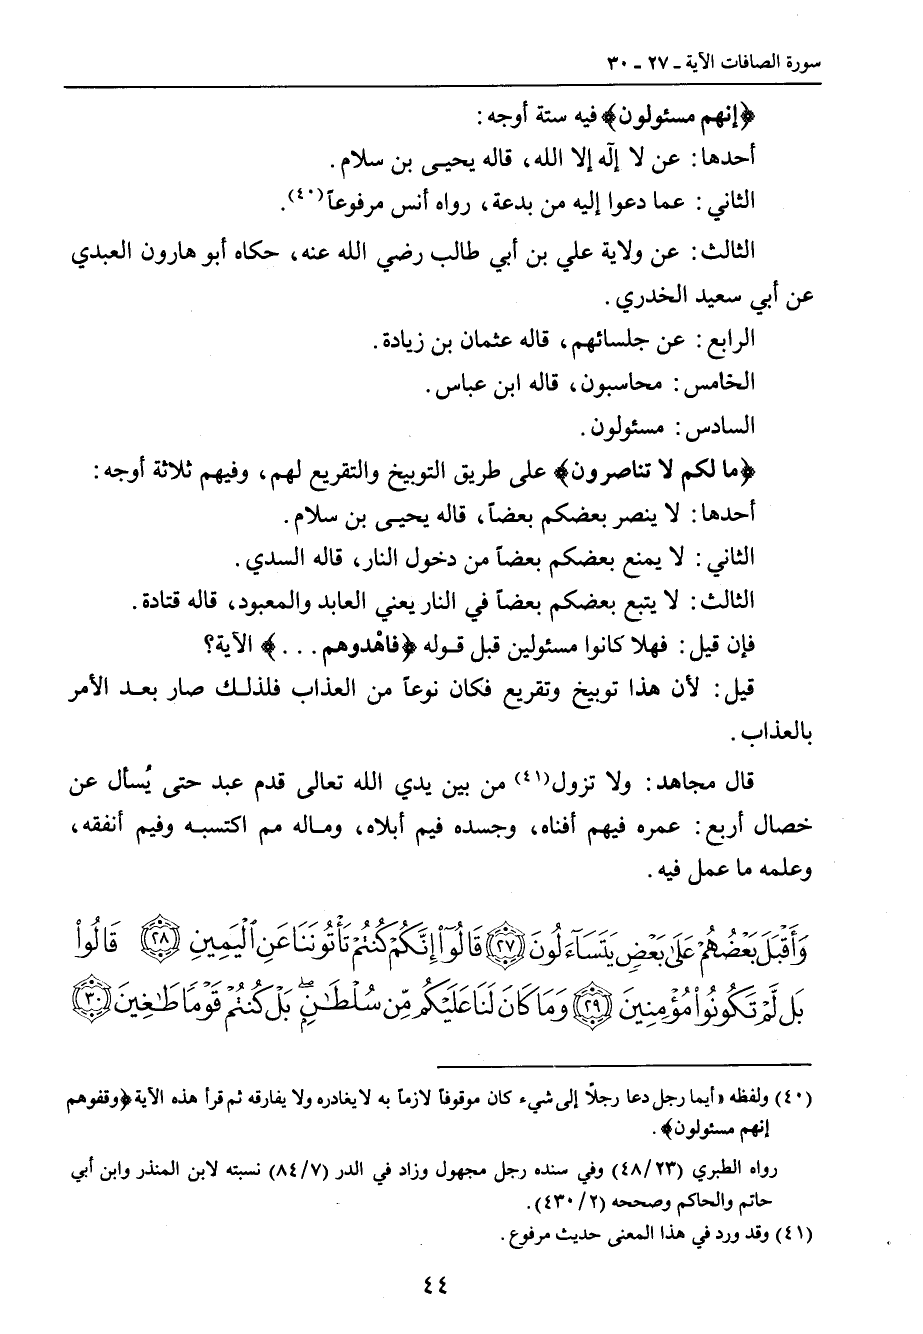 سورة الصافات الآية ـ ٢٧ ـ ٣٠
﴿إنهم مسئولون﴾ فيه ستة أوجه:
أحدها: عن لا إله إلا الله، قاله يحيـى بن سلام.
الثاني: عما دعوا إليه من بدعة، رواه أنس مرفوعاً(٤٠).
الثالث: عن ولاية علي بن أبي طالب رضي الله عنه، حكاه أبو هارون العبدي
عن أبي سعيد الخدري.
الرابع: عن جلسائهم، قاله عثمان بن زيادة.
الخامس: محاسبون، قاله ابن عباس.
السادس: مسئولون.
﴿ما لكم لا تناصرون﴾ على طريق التوبيخ والتقريع لهم، وفيهم ثلاثة أوجه:
أحدها: لا ينصر بعضكم بعضاً، قاله يحيـى بن سلام.
الثاني: لا يمنع بعضكم بعضاً من دخول النار، قاله السدي.
الثالث: لا يتبع بعضكم بعضاً في النار يعني العابد والمعبود، قاله قتادة.
فإن قيل: فهلا كانوا مسئولين قبل قـوله ﴿فاهْدوهم . . .﴾ الآية؟
قيل: لأن هذا توبيخ وتقريع فكان نوعاً من العذاب فلذلـك صار بعـد الأمر
بالعذاب.
قال مجاهد: ولا تزول(٤١) من بين يدي الله تعالى قدم عبد حتى يُسأل عن
خصال أربع: عمره فيهم أفناه، وجسده فيم أبلاه، ومـاله مم اكتسبـه وفيم أنفقه،
وعلمه ما عمل فيه.
وَأَقْبَلَ بَعْضُهُمْ عَلَىٰ بَعْضٍ يَتَسَآءَلُونَ ٢٧ قَالُوٓا۟ إِنَّكُمْ كُنتُمْ تَأْتُونَنَا عَنِ ٱلْيَمِينِ ٢٨ قَالُوا۟
بَل لَّمْ تَكُونُوا۟ مُؤْمِنِينَ ٢٩ وَمَا كَانَ لَنَا عَلَيْكُم مِّن سُلْطَـٰنٍۭ ۖ بَلْ كُنتُمْ قَوْمًا طَـٰغِينَ ٣٠
(٤٠) ولفظه «أيما رجل دعا رجلًا إلى شيء كان موقوفاً لازماً به لا يغادره ولا يفارقه ثم قرأ هذه الآية ﴿وقفوهم
إنهم مسئولون﴾.
رواه الطبري (٤٨/٢٣) وفي سنده رجل مجهول وزاد في الدر (٨٤/٧) نسبته لابن المنذر وابن أبي
حاتم والحاكم وصححه (٤٣٠/٢).
(٤١) وقد ورد في هذا المعنى حديث مرفوع.
٤٤